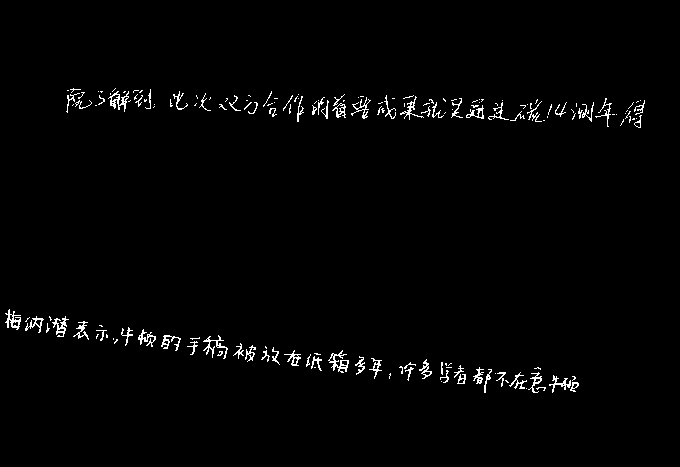 院了解到,此次双方合作的首要成果就是通过碳14测年得
梅纳潜表示,牛顿的手稿被放在纸箱多年,许多学者都不在意牛顿